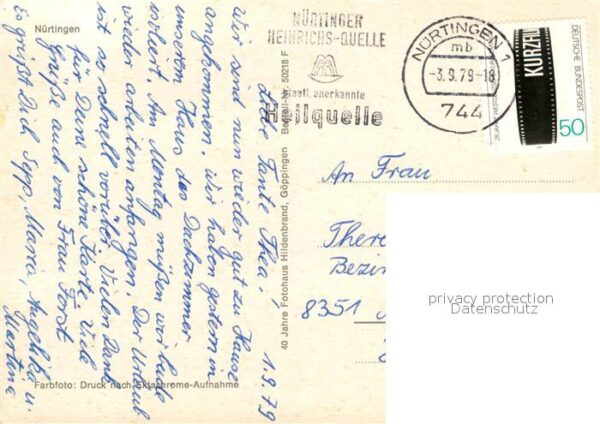 Nürtingen
NÜRTINGER
HEINRICHS-QUELLE
staatl. anerkannte
Heilquelle
NÜRTINGEN 1
mb
-3.9.79-18
744
DEUTSCHE BUNDESPOST
KURZFIL
50
1.9.79
Liebe Tante Thea!
Wir sein nun wieder gut zu Hause
angekommen. Wir haben gestern in
unserem Haus das Dachzimmer
isoliert. Am Montag müßen wir beide
wieder arbeiten anfangen. Der Urlaub
ist so schnell vorüber. Vielen Dank
für Deine schöne Karte. Viele
Grüße auch von Frau Forst
Es grüßt Dich Sepp, Maria, Angelika u.
Martina
40 Jahre Fotohaus Hildenbrand, Göppingen Bestell-Nr. 50218 F
Farbfoto: Druck nach Ektachrome-Aufnahme
An Frau
There
Bezin
8351
privacy protection
Datenschutz